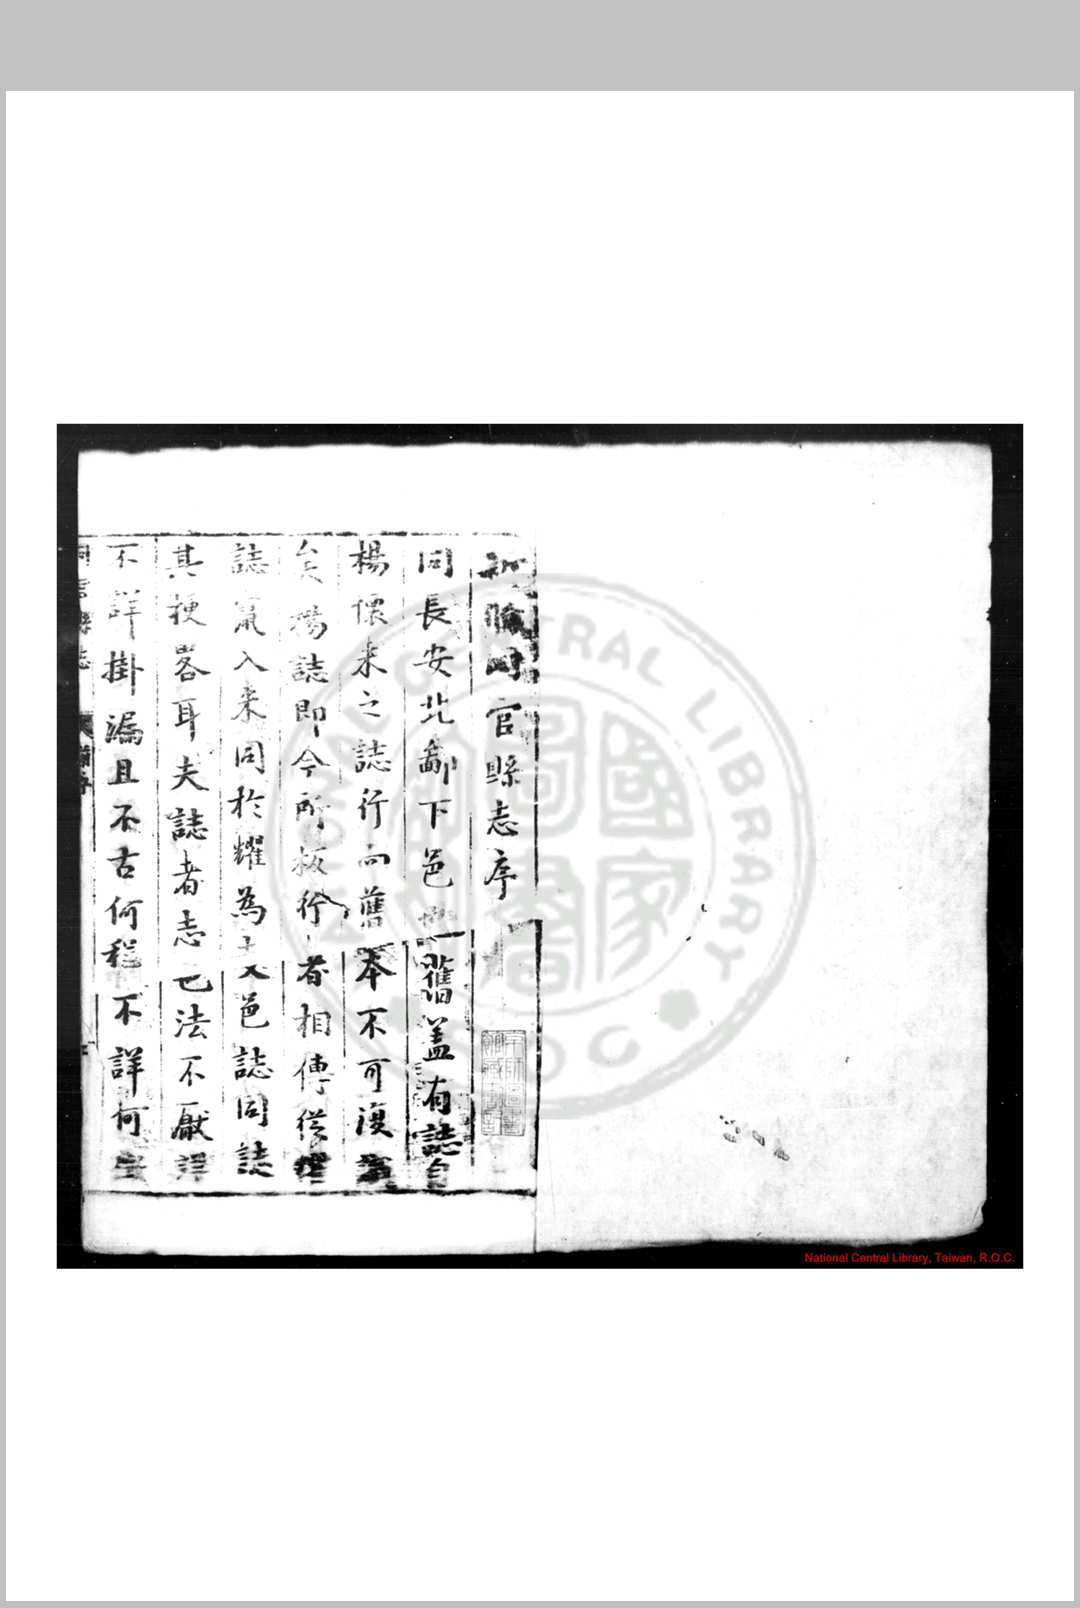 官縣志序
同長安北鄙下邑也舊蓋有誌自
楊儇来之誌行而舊本不可復
矣楊誌即今所板行者相傳從
誌竄入来同於耀為土邑誌同誌
其梗畧耳夫誌者志也法不厭詳
不詳掛漏且不古何程不詳何
同官縣志
NATIONAL CENTRAL LIBRARY
R.O.C
國家圖書
National Central Library, Taiwan, R.O.C.